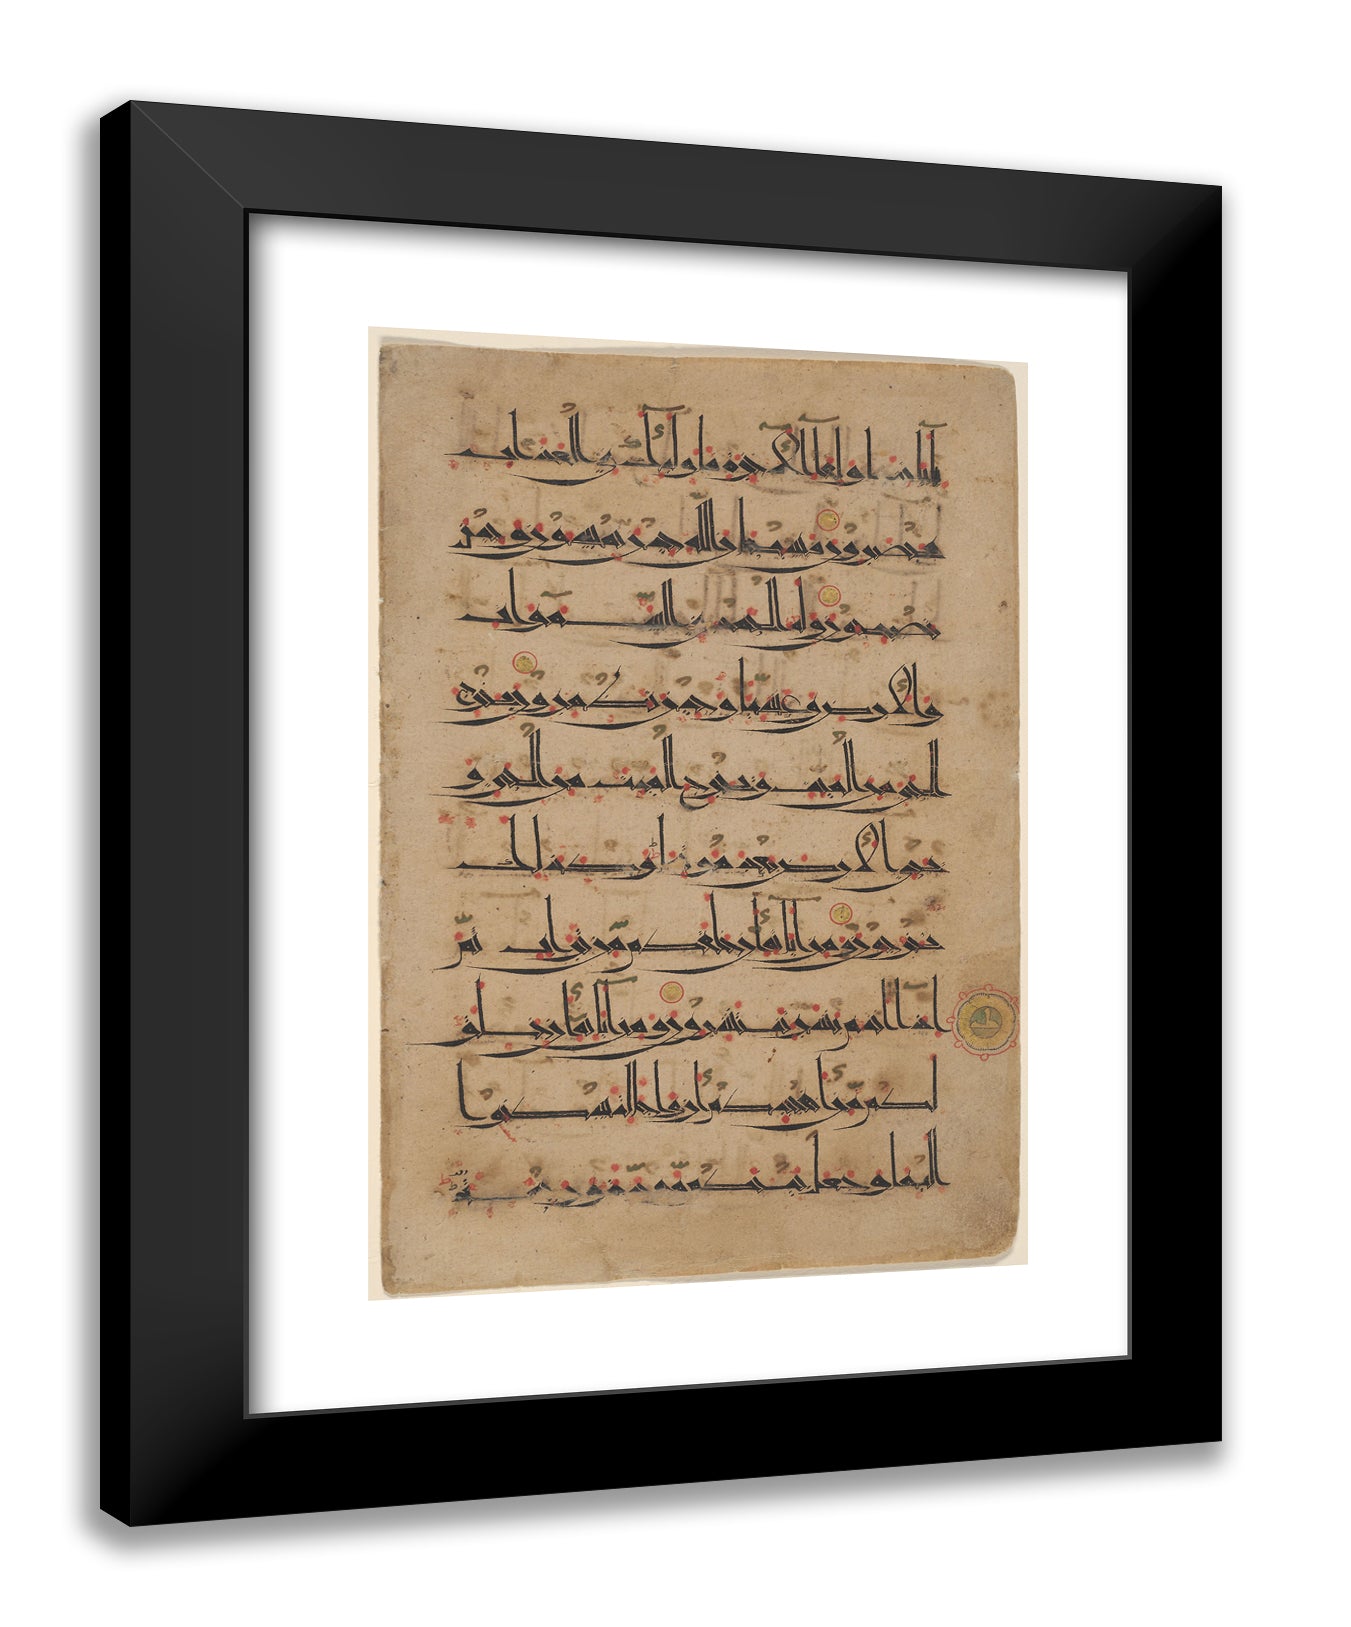 بآياتنا ولقآء الآخرة فأولئك في العذاب
محضرون فسبحان الله حين تمسون وحين
تصبحون وله الحمد في السموات
والأرض وعشيا وحين تظهرون يخرج
الحي من الميت ويخرج الميت من الحي و
يحيي الأرض بعد موتها وكذلك
تخرجون ومن آياته أن خلقكم من تراب ثم
إذا أنتم بشر تنتشرون ومن آياته أن خلق
لكم من أنفسكم أزواجا لتسكنوا
إليها وجعل بينكم مودة ورحمة